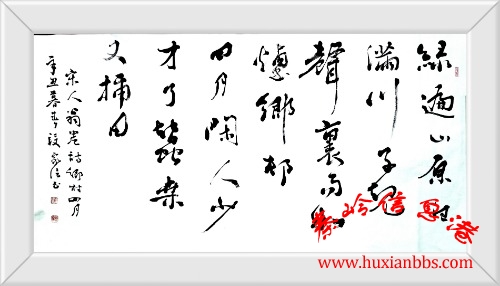 綠遍山原白
滿川子規
聲裏雨如
煙鄉邨
四月閑人少
才了蠶桒
又插田
宋人翁卷詩鄉村四月
辛丑暮春
www.huxianbbs.com